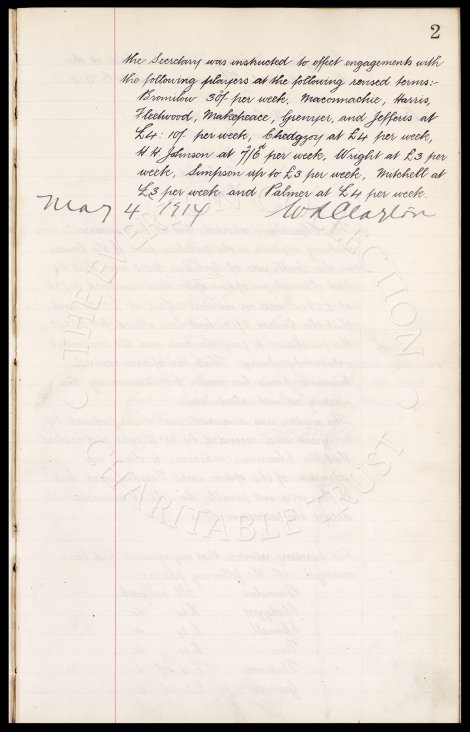 2
the Secretary was instructed to effect engagements with
the following players at the following revised terms:-
Bromilow 30/- per week. Maconnachie, Harris,
Fleetwood, Makepeace, Grenyer, and Jefferis at
£4:10/- per week, Chedgzoy at £4 per week,
H H Johnson at 7/6d per week, Wright at £3 per
week, Simpson up to £3 per week, Mitchell at
£3 per week and Palmer at £4 per week.
May 4 1914 W R Clayton
THE EVERTON COLLECTION
CHARITABLE TRUST